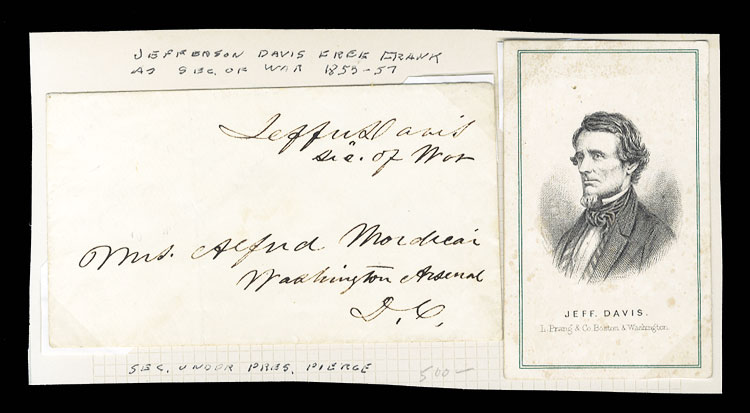 JEFFERSON DAVIS FREE FRANK
AS SEC. OF WAR 1853-57
Jeffn Davis
Sec. of War
Mrs. Alfred Mordecai
Washington Arsenal
D.C.
SEC. UNDER PRES. PIERCE
500-
JEFF. DAVIS.
L. Prang & Co. Boston & Washington.